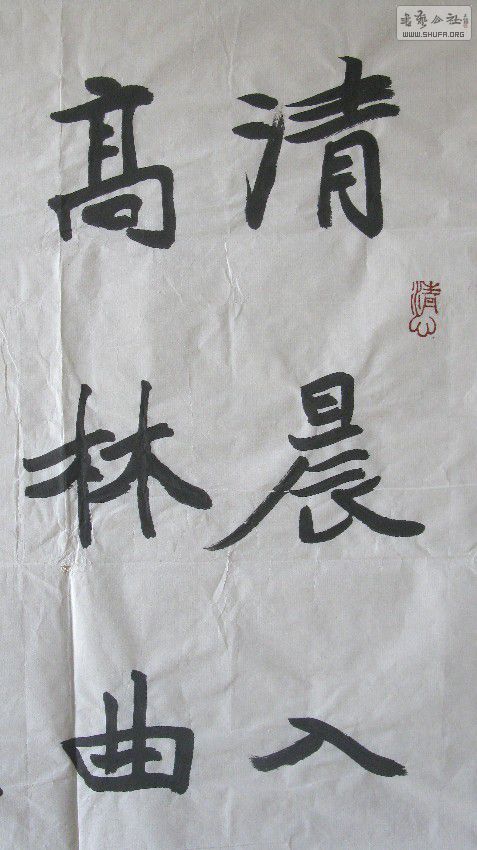 清晨入
髙林曲
清心
书艺公社
WWW.SHUFA.ORG